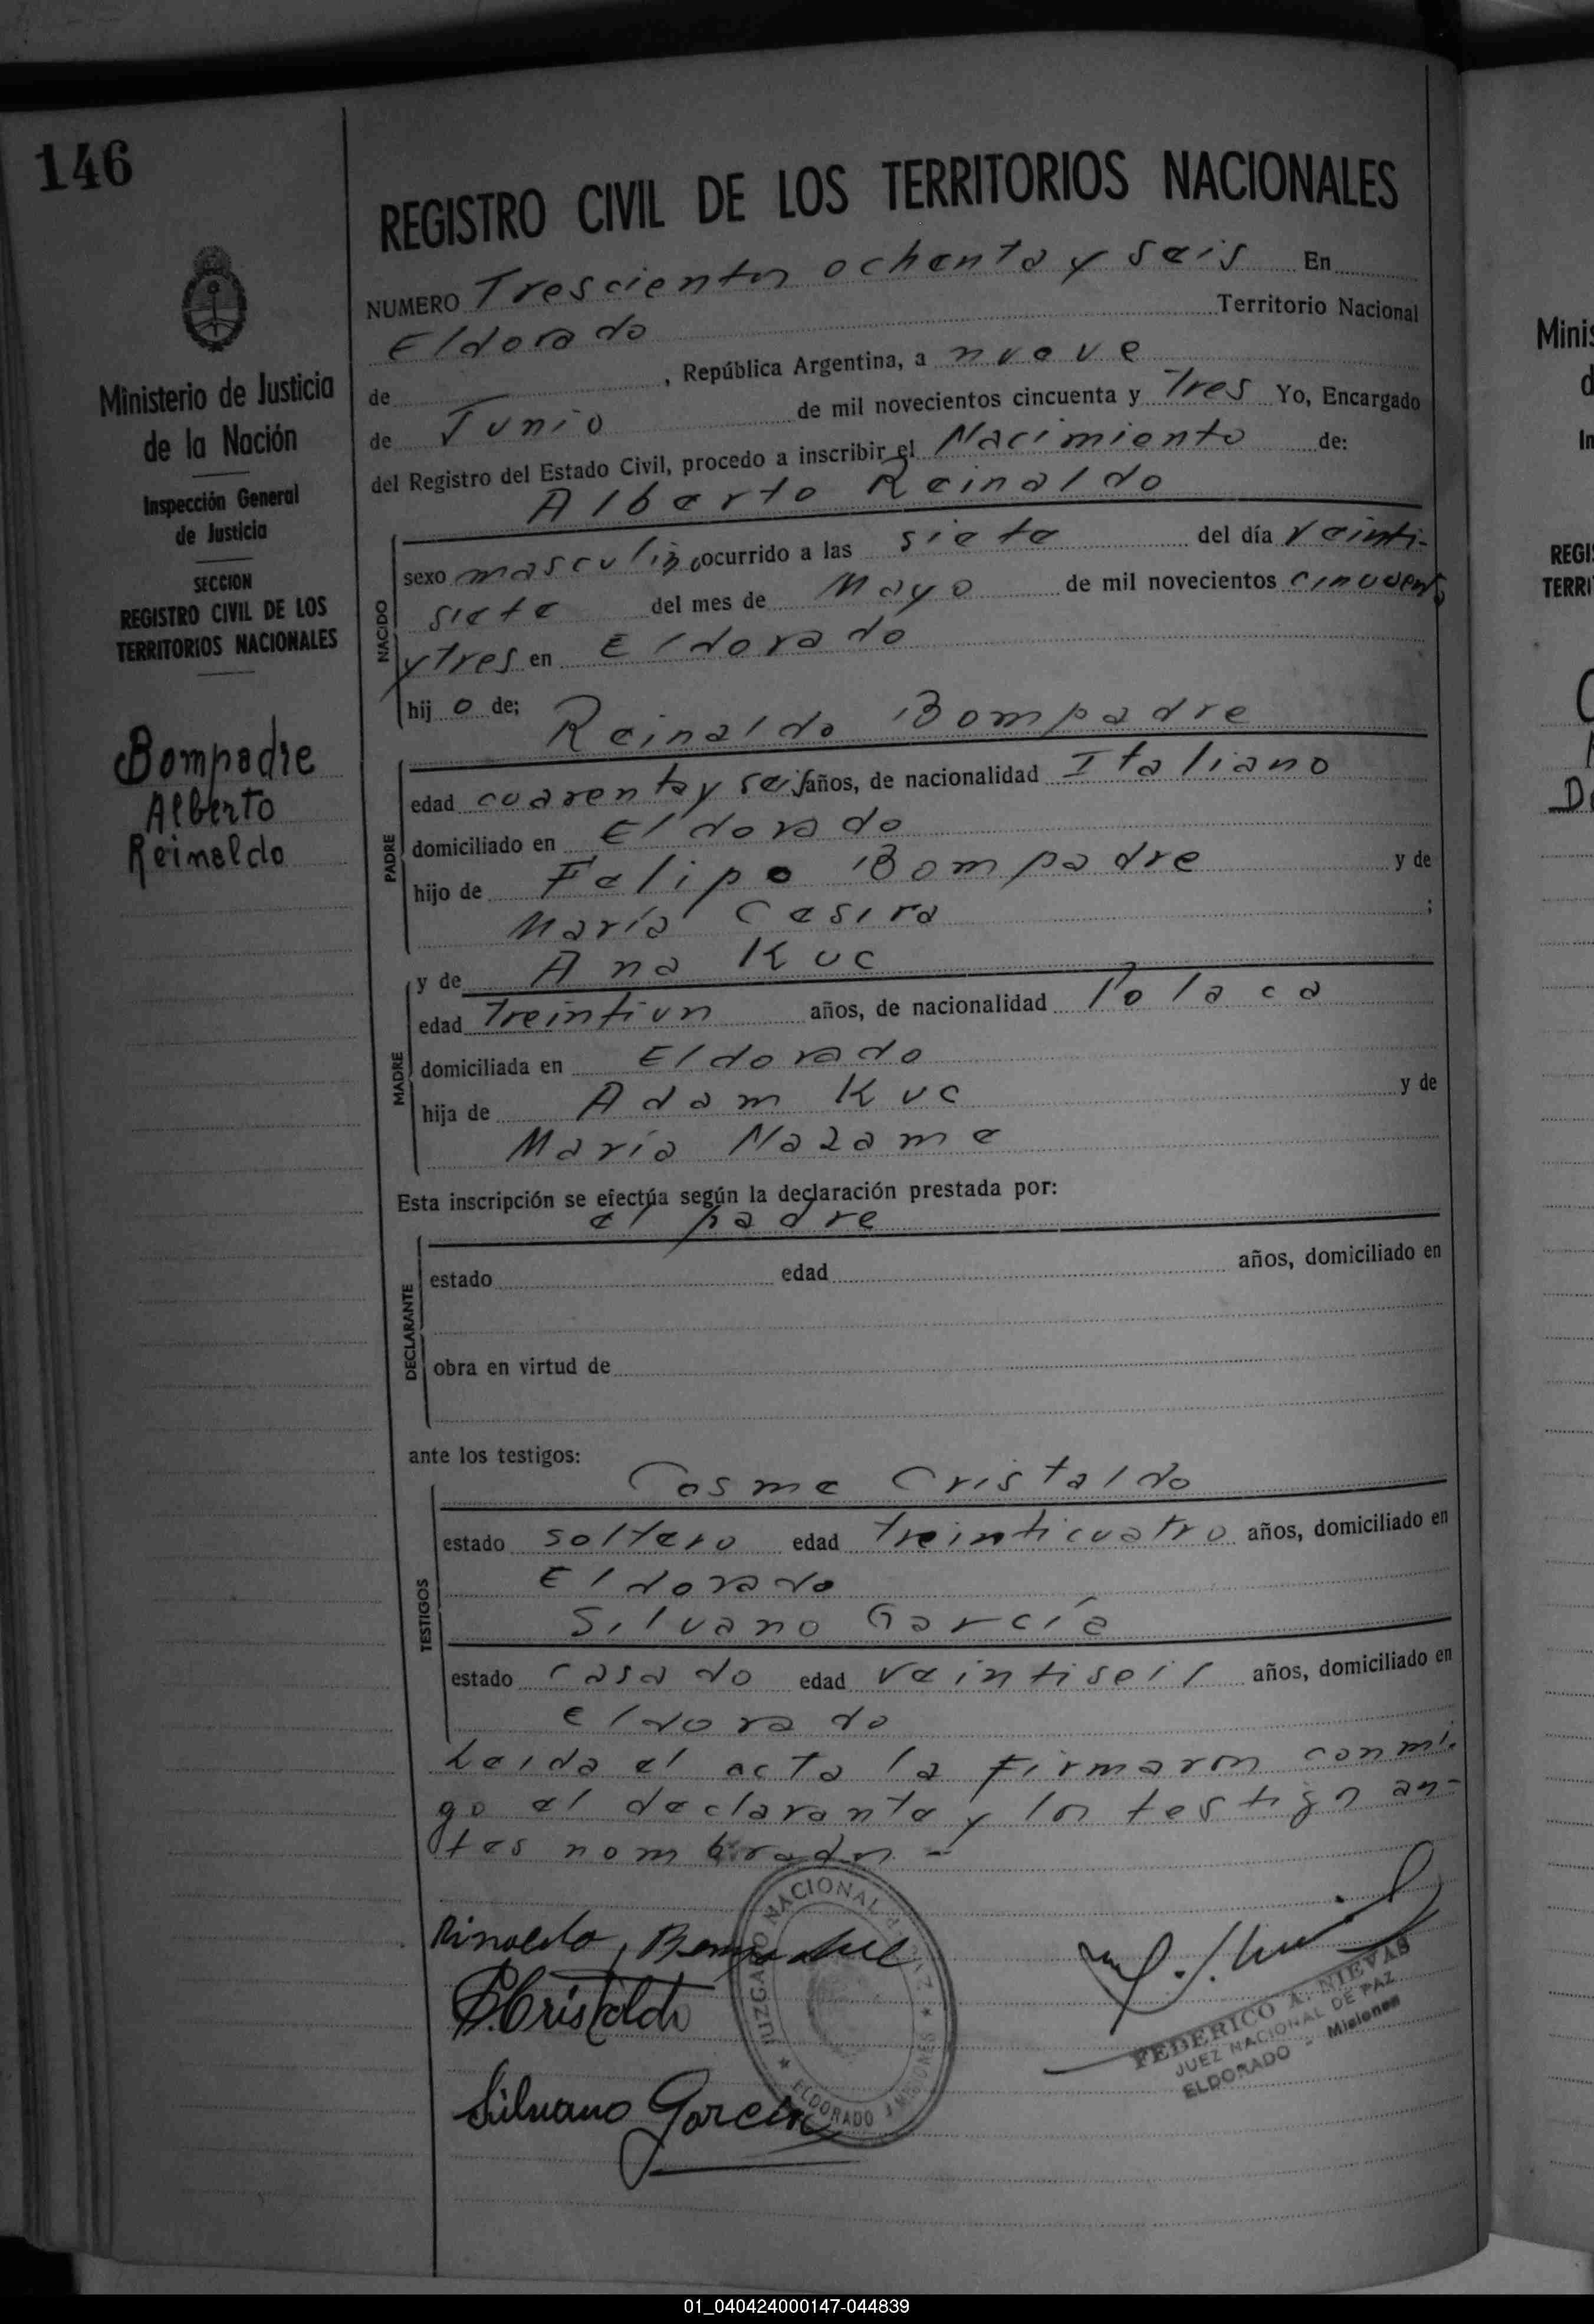 146
Ministerio de Justicia
de la Nación
Inspección General
de Justicia
SECCION
REGISTRO CIVIL DE LOS
TERRITORIOS NACIONALES
Bompadre
Alberto
Reinaldo
REGISTRO CIVIL DE LOS TERRITORIOS NACIONALES
NUMERO Trescientos ochenta y seis En
Eldorado Territorio Nacional
de , República Argentina, a nueve
de Junio de mil novecientos cincuenta y Tres Yo, Encargado
del Registro del Estado Civil, procedo a inscribir el Nacimiento de:
Alberto Reinaldo
NACIDO
sexo masculino ocurrido a las siete del día veinti-
siete del mes de Mayo de mil novecientos cincuenta
y tres en Eldorado
hij o de;
Reinaldo Bompadre
PADRE
edad cuarenta y seis años, de nacionalidad Italiano
domiciliado en Eldorado
hijo de Felipo Bompadre y de
María Cesira ;
y de Ana Kuc
MADRE
edad Treintiun años, de nacionalidad Polaca
domiciliada en Eldorado
hija de Adam Kuc y de
María
Esta inscripción se efectúa según la declaración prestada por:
el padre
DECLARANTE
estado edad años, domiciliado en
obra en virtud de
ante los testigos:
Cosme Cristaldo
TESTIGOS
estado soltero edad treinticuatro años, domiciliado en
Eldorado
Silvano García
estado casado edad veintiseis años, domiciliado en
Eldorado
Leida el acta la firmaron conmi-
go el declarante y los testigos an-
tes nombrados -
Rinaldo Bompadre
Cristaldo
Silvano Garcia
JUZGADO NACIONAL DE PAZ
ELDORADO (MISIONES)
FEDERICO A. NIEVAS
JUEZ NACIONAL DE PAZ
ELDORADO - Misiones
Minis
d
In
REGI
TERRI
01_040424000147-044839